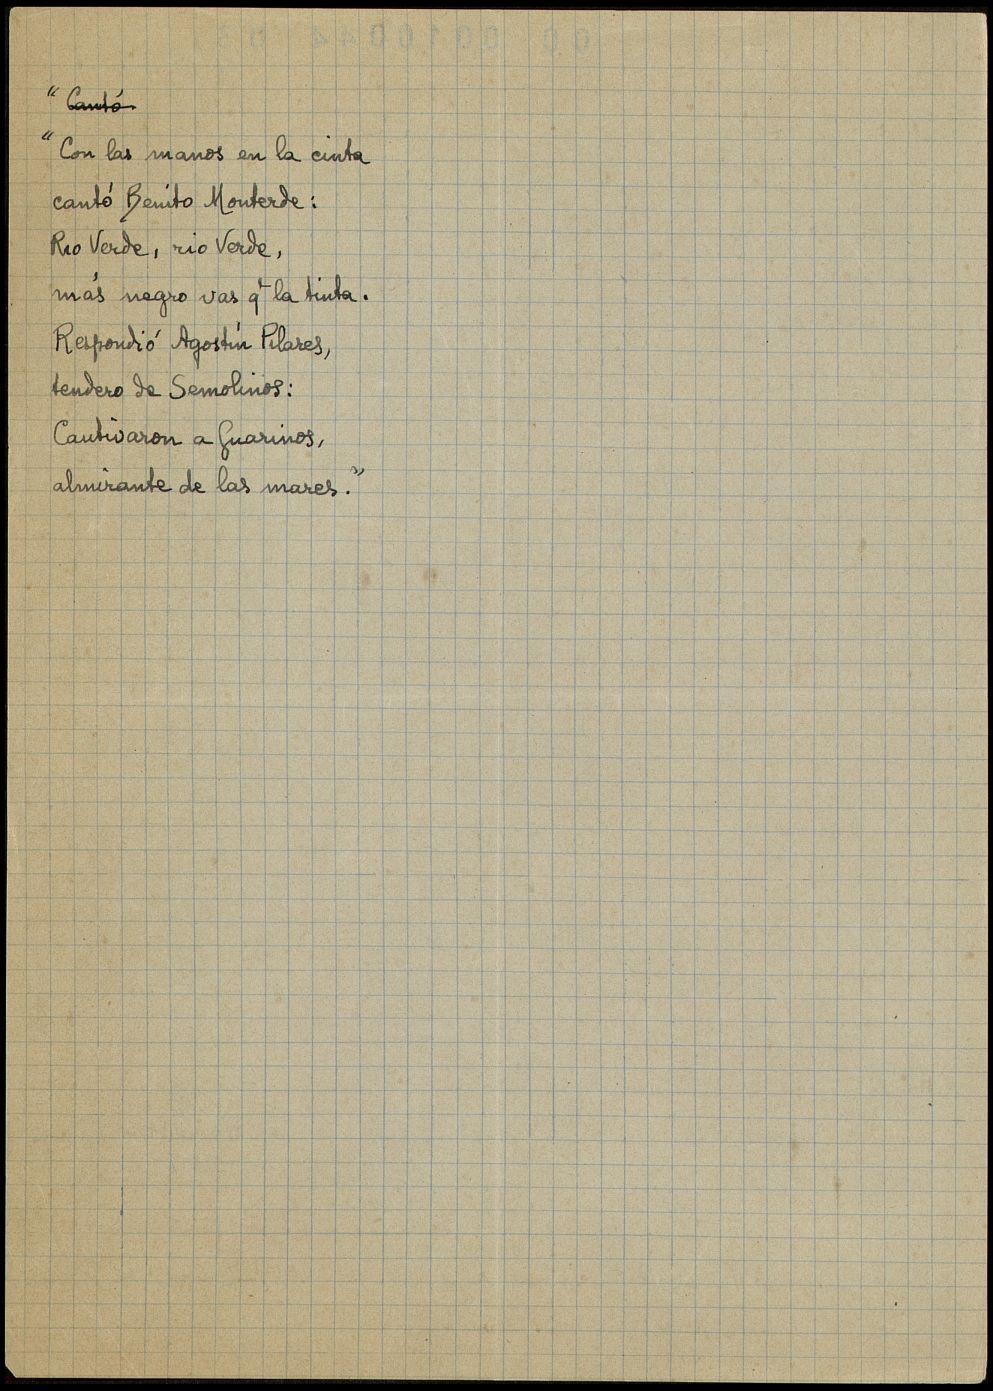 “ Cantó
“Con las manos en la cinta
cantó Benito Monterde:
Rio Verde, rio Verde,
más negro vas q̃ la tinta.
Respondió Agostín Pilares,
tendero de Semolinos:
Cautivaron a Guarinos,
almirante de las mares.”